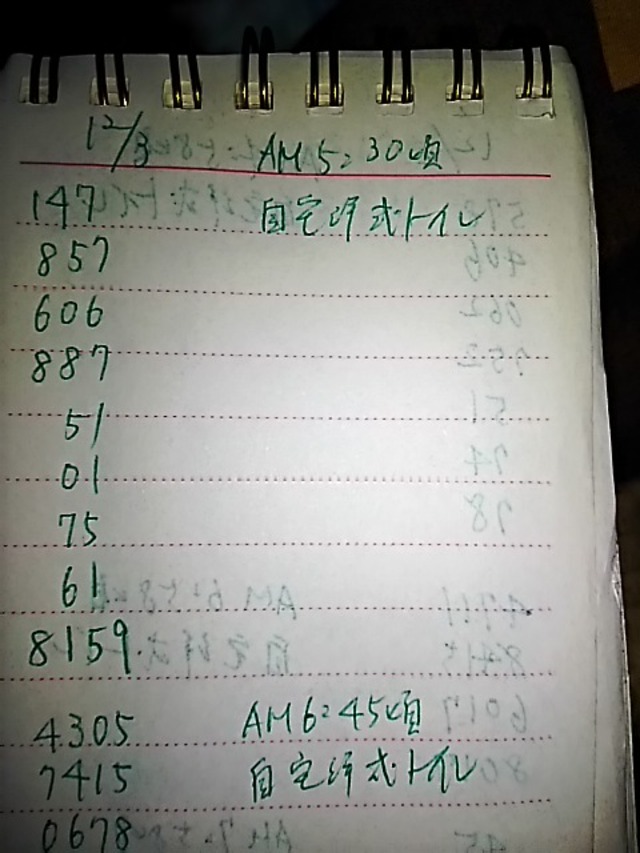 12/3 AM5:30頃
147 自宅洋式トイレ
857
606
887
51
01
75
61
8159
4305 AM6:45頃
7415 自宅洋式トイレ
0678